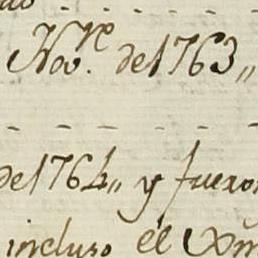 Nov.re de 1763,,
de 1764,, y fueron
incluso el Xm